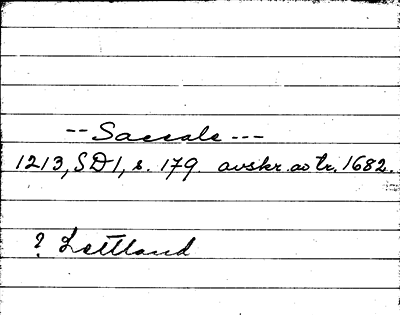 -- Saccalc ---
1213, SD1, s. 179. avskr. av tr. 1682.
? Lettland